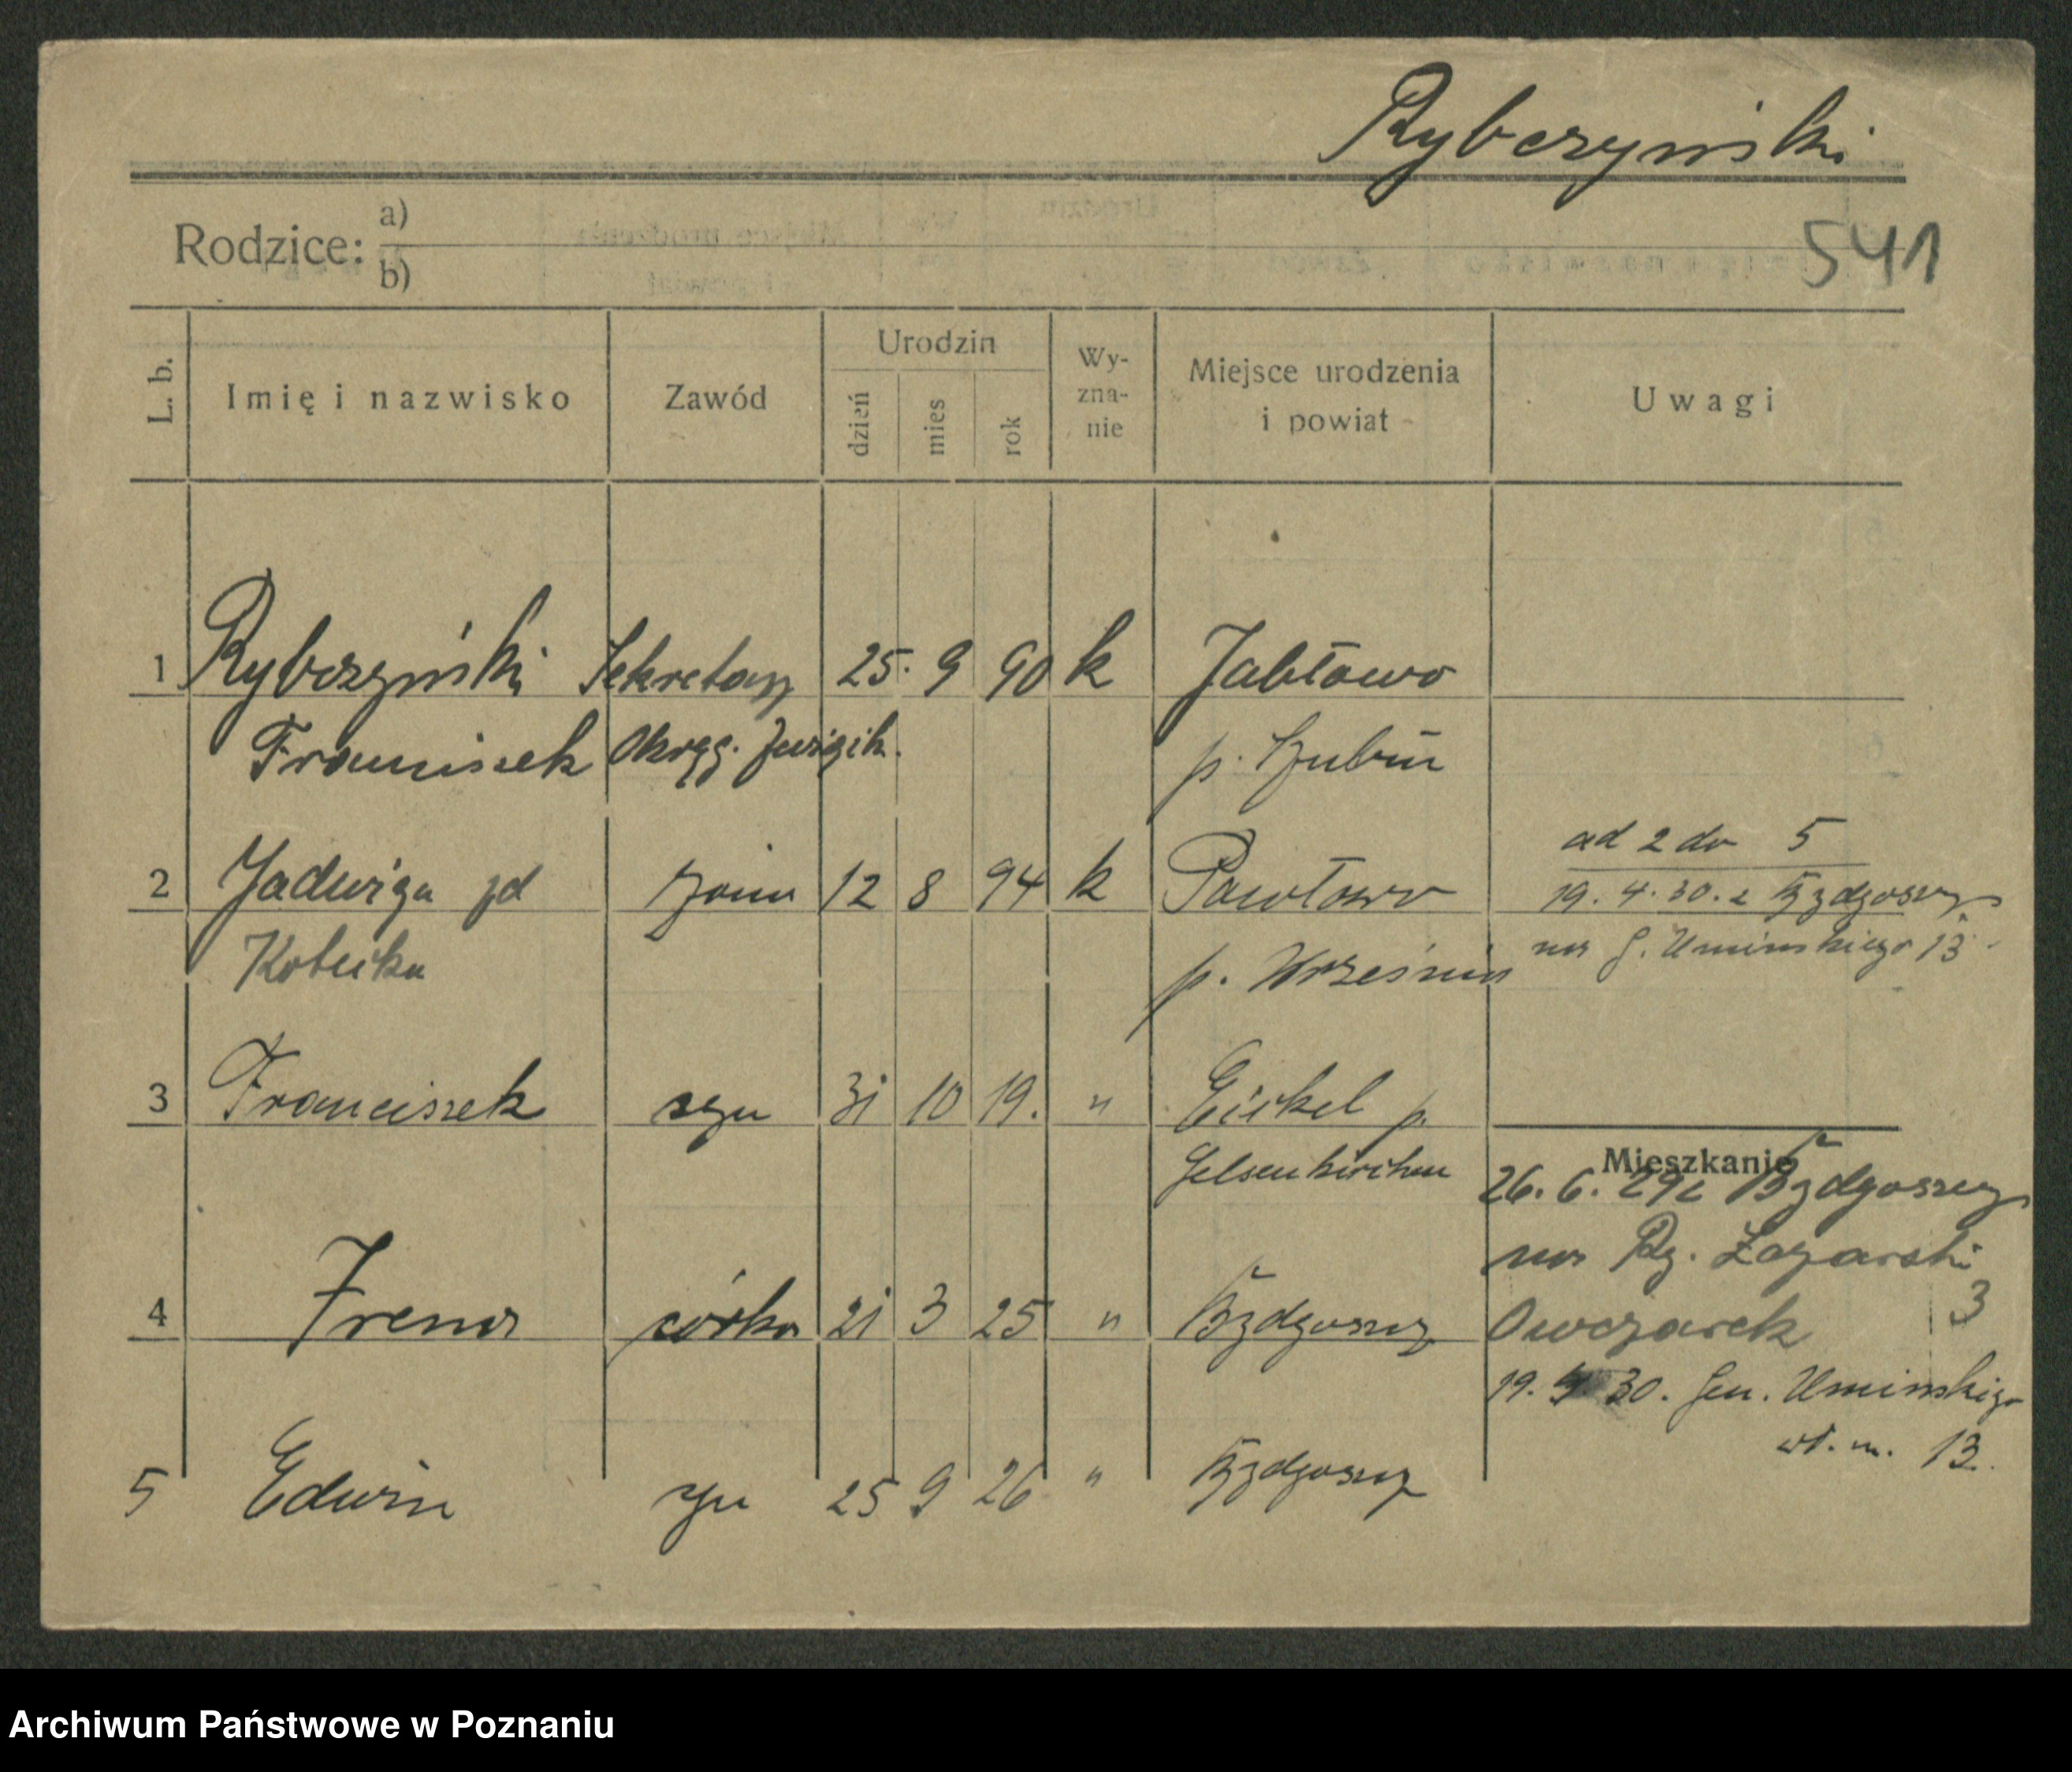 Rybczyński
541
Rodzice: a)
b)
L. b. Imię i nazwisko Zawód Urodzin dzień mies rok Wy-zna-nie Miejsce urodzenia i powiat Uwagi
1 Rybczyński Sekretarz 25. 9 90 k Jabłowo
Franciszek Okręg. p. Szubin
ad 2 do 5
2 Jadwiga zd żona 12 8 94 k Pawłowo 19. 4. 30. z Bydgoszczy
Kobucka p. Września na G. Umińskiego 13
3 Franciszek syn 31 10 19. " Eickel p.
Gelsenkirchen
Mieszkanie
26. 6. 29 z Bydgoszczy
na Ry. Łazarski 3
4 Irena córka 21 3 25 " Bydgoszcz Owczarek
19. 4 30. Gen. Umińskiego
wł. m. 13.
5 Edwin syn 25 9 26 " Bydgoszcz
Archiwum Państwowe w Poznaniu